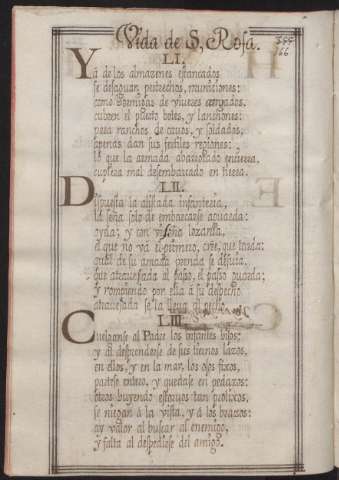 Vida de S, Rosa.
LI.
Ya de los almazenes estancados
se desaguan pertrechos, municiones:
como hormigas de viveres cargados.
cubren el puerto botes, y lanchones:
para ranchos de cavos, y soldados,
apenas dan sus fertiles regiones:
lo que la armada
cupiera mal desembarcado en tierra.
LII.
Dispuesta la alistada infanteria,
la seña solo de embarcarse aguarda:
oyda; y con visoña lozania,
el que no va el primero, cree, que tarda:
quien de su amada prenda se desvia,
que atravesada al passo, el passo guarda;
y rompiendo por ella à su despecho
atravesada se la lleva al pecho.
LIII.
Cuelganse al Padre los infantes hijos;
y al desprenderse de sus tiernos lazos,
en ellos, y en la mar, los ojos fixos,
partese entero, y quedase en pedazos:
otros huyendo estorvos tan prolixos,
se niegan à la vista, y à los brazos:
ay valor al buscar al enemigo,
y falta al despedirse del amigo.